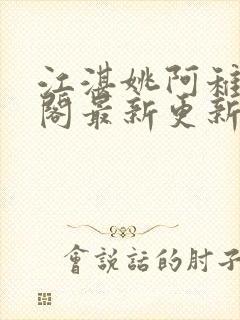 江湛姚阿稚
閣最新更新
會說話的肘子